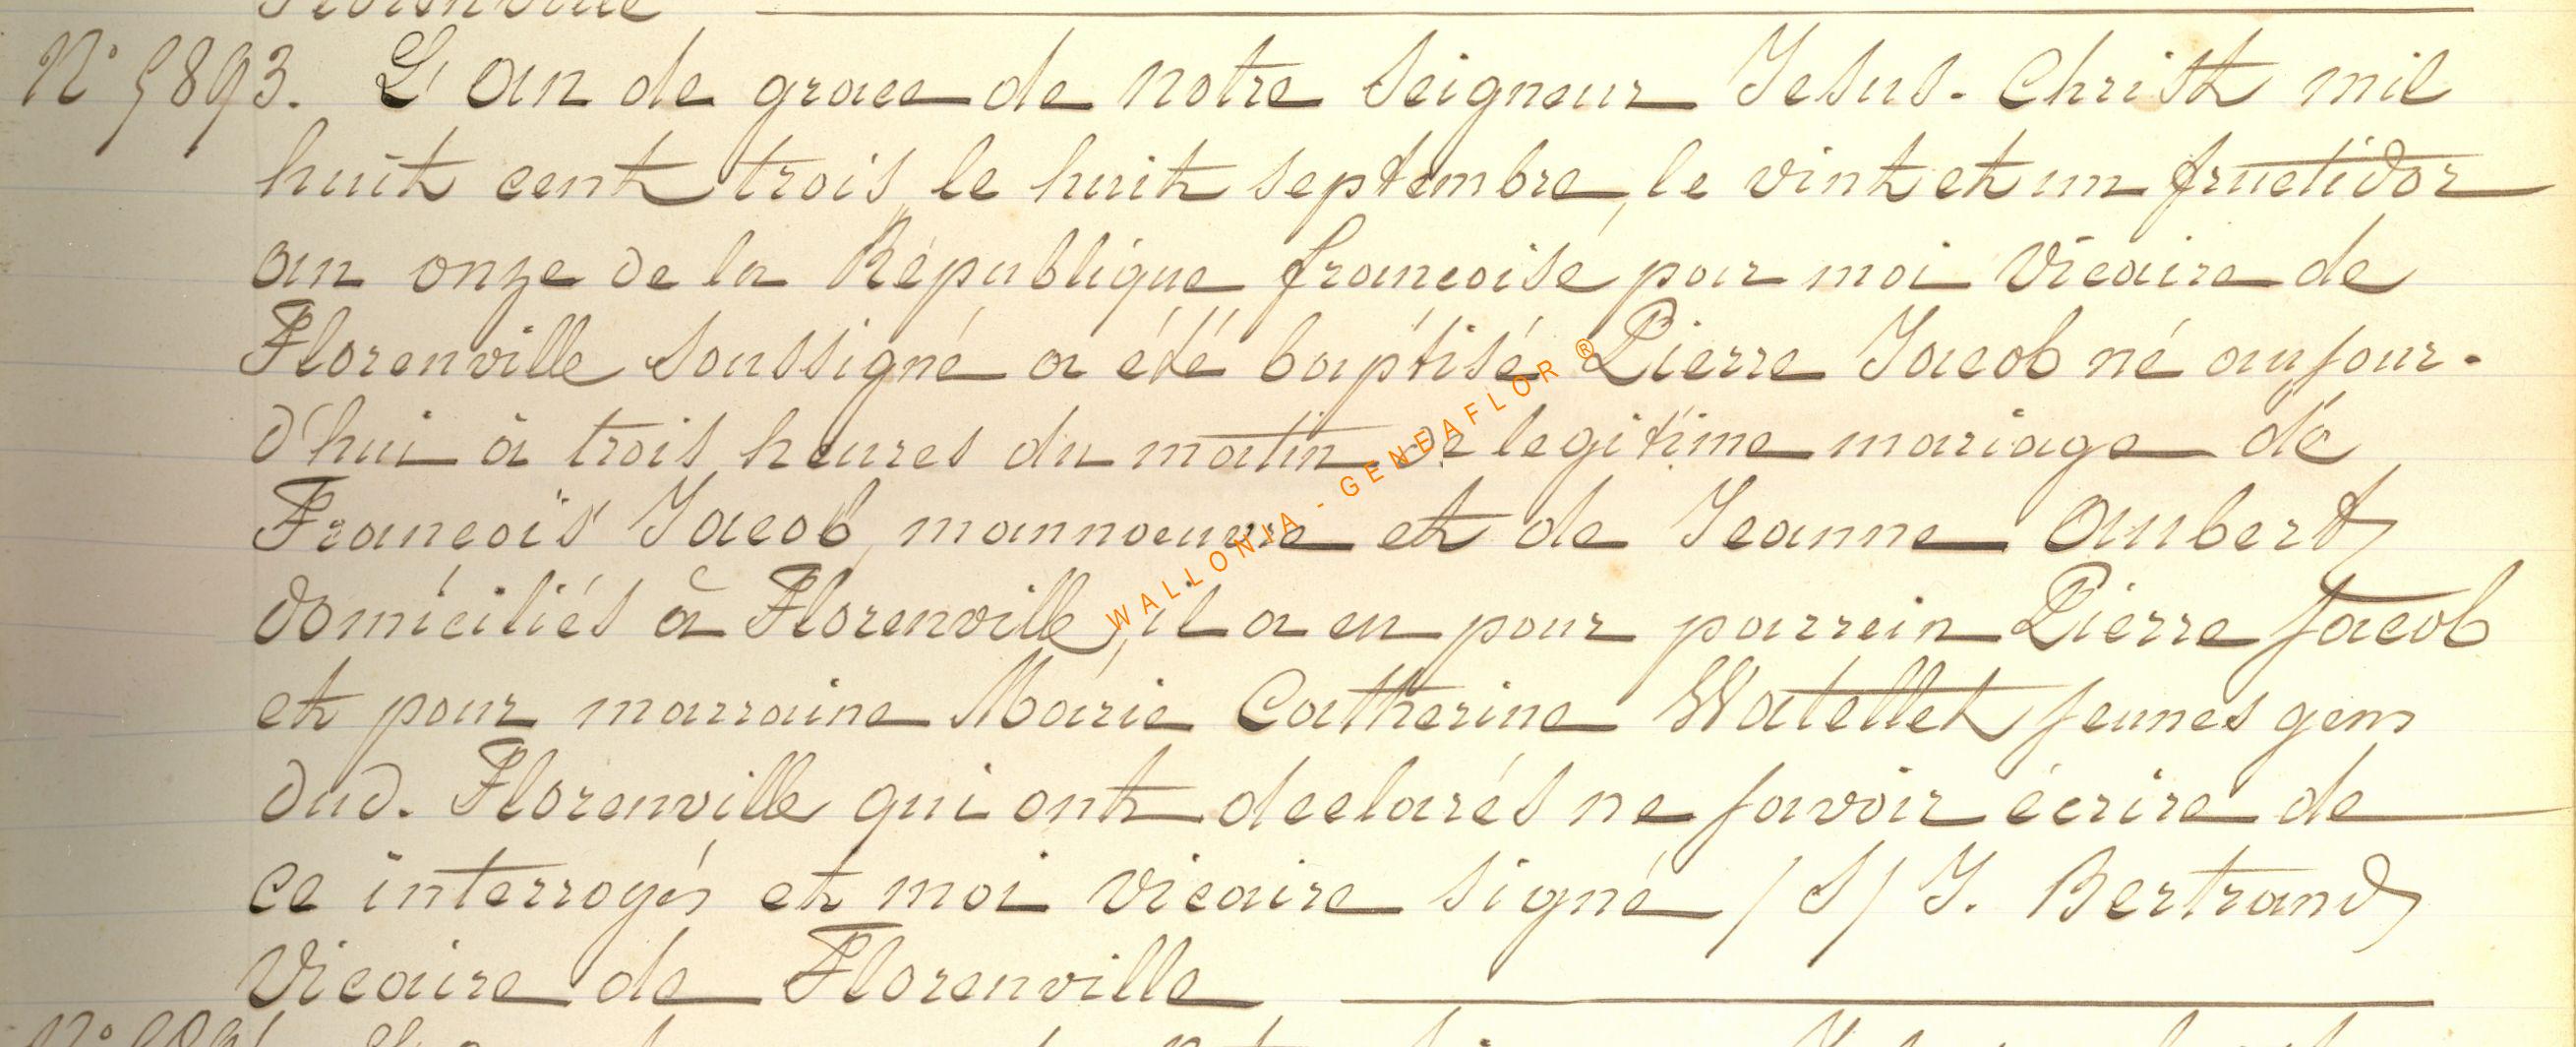 Florenville
N° 5893. L'an de grace de notre Seigneur Jesus-Christ mil
huit cent trois, le huit septembre, le vint et un fructidor
an onze de la République françoise par moi Vicaire de
Florenville soussigné a été baptisé Pierre Jacob né aujour-
d'hui à trois heures du matin de legitime mariage de
François Jacob, mannoeuvre et de Jeanne Aubert,
domiciliés à Florenville, il a eu pour parrein Pierre Jacob
et pour marraine Marie Catherine Watellet jeunes gens
dud. Florenville qui ont declarés ne savoir écrire de
ce interrogés et moi vicaire signé /S/ J. Bertrand,
Vicaire de Florenville
WALLONIA - GENEAFLOR ®